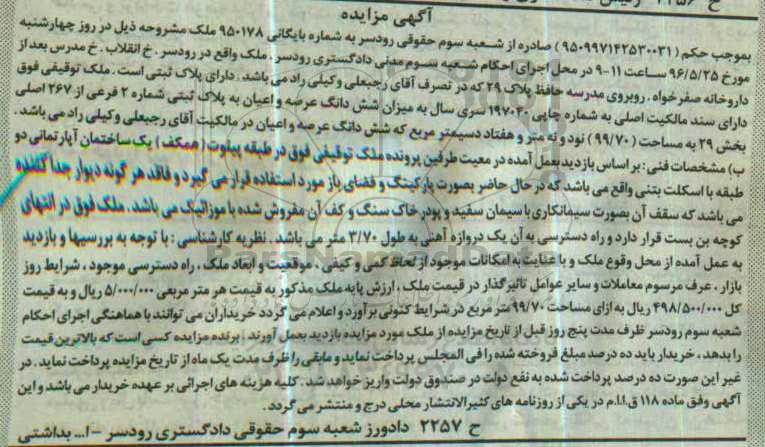 آگهی مزایده
بموجب حکم (۹۵۰۹۹۷۱۴۲۵۳۰۰۳۱) صادره از شعبه سوم حقوقی رودسر به شماره بایگانی ۹۵۰۱۷۸ ملک مشروحه ذیل در روز چهارشنبه
مورخ ۹۶/۵/۲۵ ساعت ۱۱-۹ در محل اجرای احکام شعبه سوم مدنی دادگستری رودسر. ملک واقع در رودسر. خ انقلاب. خ مدرس بعد از
داروخانه صفرخواه. روبروی مدرسه حافظ پلاک ۲۹ که در تصرف آقای رجبعلی وکیلی راد می باشد. دارای پلاک ثبتی است. ملک توقیفی فوق
دارای سند مالکیت اصلی به شماره چاپی ۱۹۷۰۲۰ سری سال به میزان شش دانگ عرصه و اعیان به پلاک ثبتی شماره ۲ فرعی از ۲۶۷ اصلی
بخش ۲۹ به مساحت (۹۹/۷۰) نود و نه متر و هفتاد دسیمتر مربع که شش دانگ عرصه و اعیان در مالکیت آقای رجبعلی وکیلی راد می باشد.
ب) مشخصات فنی: بر اساس بازدید بعمل آمده در معیت طرفین پرونده ملک توقیفی فوق در طبقه پیلوت (همکف) یک ساختمان آپارتمانی دو
طبقه با اسکلت بتنی واقع می باشد که در حال حاضر بصورت پارکینگ و فضای باز مورد استفاده قرار می گیرد و فاقد هر گونه دیوار جدا کننده
می باشد که سقف آن بصورت سیمانکاری با سیمان سفید و پودر خاک سنگ و کف آن مفروش شده با موزائیک می باشد. ملک فوق در انتهای
کوچه بن بست قرار دارد و راه دسترسی به آن یک دروازه آهنی به طول ۳/۷۰ متر می باشد. نظریه کارشناسی: با توجه به بررسیها و بازدید
به عمل آمده از محل وقوع ملک و با عنایت به امکانات موجود از لحاظ کمی و کیفی، موقعیت و ابعاد ملک، راه دسترسی موجود، شرایط روز
بازار، عرف مرسوم معاملات و سایر عوامل تاثیرگذار در قیمت ملک، ارزش پایه ملک مذکور به قیمت هر متر مربعی ۵/۰۰۰/۰۰۰ ریال و به قیمت
کل ۴۹۸/۵۰۰/۰۰۰ ریال به ازای مساحت ۹۹/۷۰ متر مربع در شرایط کنونی برآورد و اعلام می گردد خریداران می توانند با هماهنگی اجرای احکام
شعبه سوم رودسر ظرف مدت پنج روز قبل از تاریخ مزایده از ملک مورد مزایده بازدید بعمل آورند، برنده مزایده کسی است که بالاترین قیمت
را بدهد، خریدار باید ده درصد مبلغ فروخته شده را فی المجلس پرداخت نماید و مابقی را ظرف مدت یک ماه از تاریخ مزایده پرداخت نماید. در
غیر این صورت ده درصد پرداخت شده به نفع دولت در صندوق دولت واریز خواهد شد. کلیه هزینه های اجرائی بر عهده خریدار می باشد و این
آگهی وفق ماده ۱۱۸ ق.ا.ا.م در یکی از روزنامه های کثیرالانتشار محلی درج و منتشر می گردد.
ح ۲۲۵۷ دادورز شعبه سوم حقوقی دادگستری رودسر – ا... بداشتی